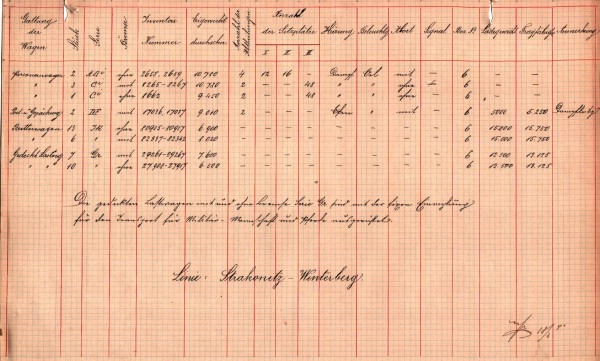 Gattung der Wägen Stück Serie Bremse Inventar Nummer Eigengewicht durchschn. Anzahl der Abtheilungen Anzahl der Sitzplätze I II III Heizung Beleuchtg Abort Signal Ladegewicht Tragfähigk. Anmerkung
Personenwagen 2 ohne 2658, 2659 10,780 4 12 16 – Dampf Oel mit – 6
" 3 mit 8265-8267 10,780 2 – – 48 " " ohne 6
" 1 ohne 8662 9,450 2 48 " " ohne – 6
2 mit 17036, 17037 9,010 2 Ofen " mit – 6 5000 5,250
13 ohne 6,900 6 15,000 15,750
6 " mit 8,020 6 15,000 15,750
7 Gr mit 29261-29267 7,600 6 12,500 13,125
" " 10 " ohne 27908-27917 6,500 6 12,500 13,125
Die gedeckten Lastwagen mit und ohne Bremse Serie Gr sind mit der fixen Einrichtung
für den Transport für Militär-Mannschaft und Pferde ausgerüstet.
Linie: Strakonitz – Winterberg.